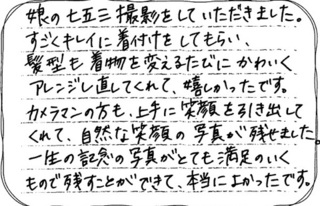 娘の七五三撮影をしていただきました。
すごくキレイに着付けをしてもらい、
髪型も着物を変えるたびにかわいく
アレンジし直してくれて、嬉しかったです。
カメラマンの方も、上手に笑顔を引き出して
くれて、自然な笑顔の写真が残せました
一生の記念の写真がとても満足のいく
もので残すことができて、本当によかったです。